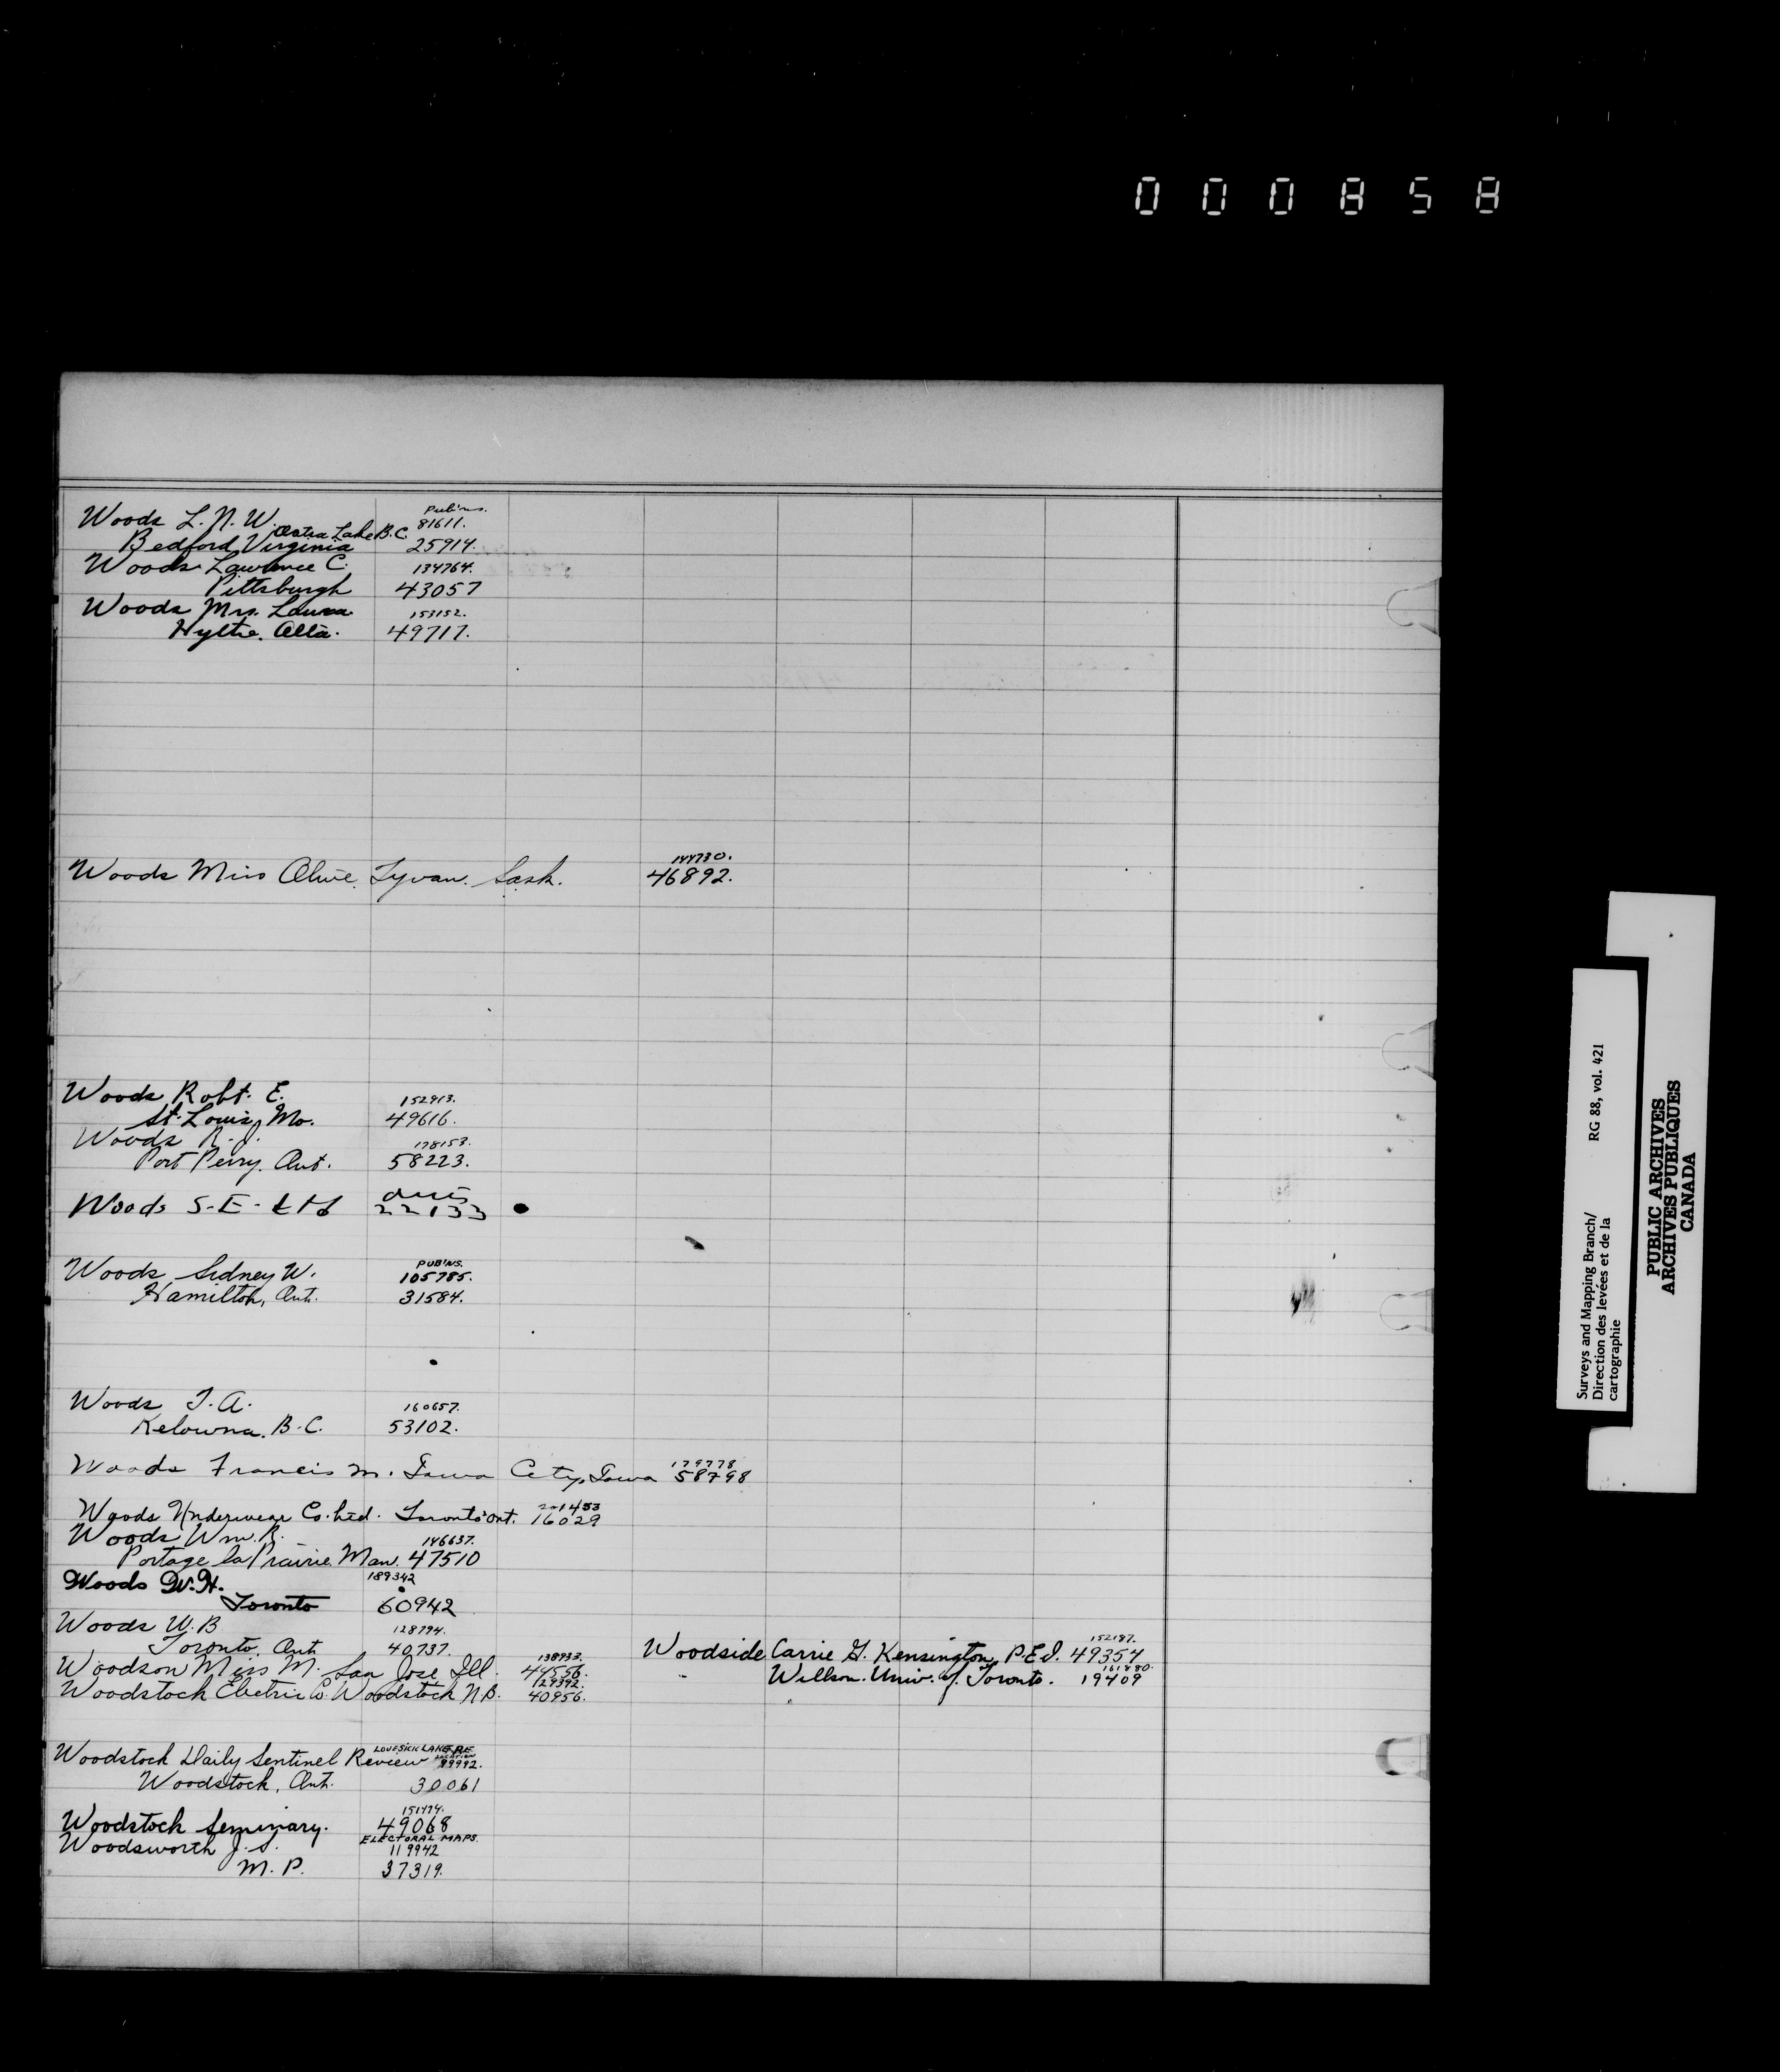 000858
Woods L. N. W. Pub'ns. 81611.
Lake B.C.
Bedford, Virginia 25914.
Woods Lawrence C. 134764.
Pittsburgh 43057
Woods Mrs. Laura 153152.
Hythe. Alta. 49717.
Woods Miss Olive. Tyvan. Sask. 144730. 46892.
Woods Robt. E. 152913.
St. Louis, Mo. 49616.
Woods R. J. 178153.
Port Perry, Ont. 58223.
Woods S-E-Ltd 22133
Woods, Sidney W. PUB'NS. 105785.
Hamilton, Ont. 31584.
Woods T. A. 160657.
Kelowna. B.C. 53102.
Woods Francis M. Iowa City, Iowa 179778 58798
Woods Underwear Co. Ltd. Toronto Ont. 221453 16029
Woods Wm. R. 146637.
Portage la Prairie Man. 47510
Woods W. H. 189342
Toronto 60942
Woods W. B 128794.
Toronto, Ont 40737.
Woodson Miss M. San Jose Ill. 138933. 44556.
Woodstock Electric Co. Woodstock N.B. 129392. 40956.
Woodside Carrie G. Kensington, P.E.I. 152187. 49354
" Willson. Univ. of Toronto. 161880. 19409
Woodstock Daily Sentinel Review LOVESICK LAKE RE LOCATION 99992.
Woodstock, Ont. 30061
Woodstock Seminary. 151474. 49068
Woodsworth J. S. ELECTORAL MAPS. 119942
M. P. 37319.
Surveys and Mapping Branch/
Direction des levées et de la
cartographie
RG 88, vol. 421
PUBLIC ARCHIVES
ARCHIVES PUBLIQUES
CANADA